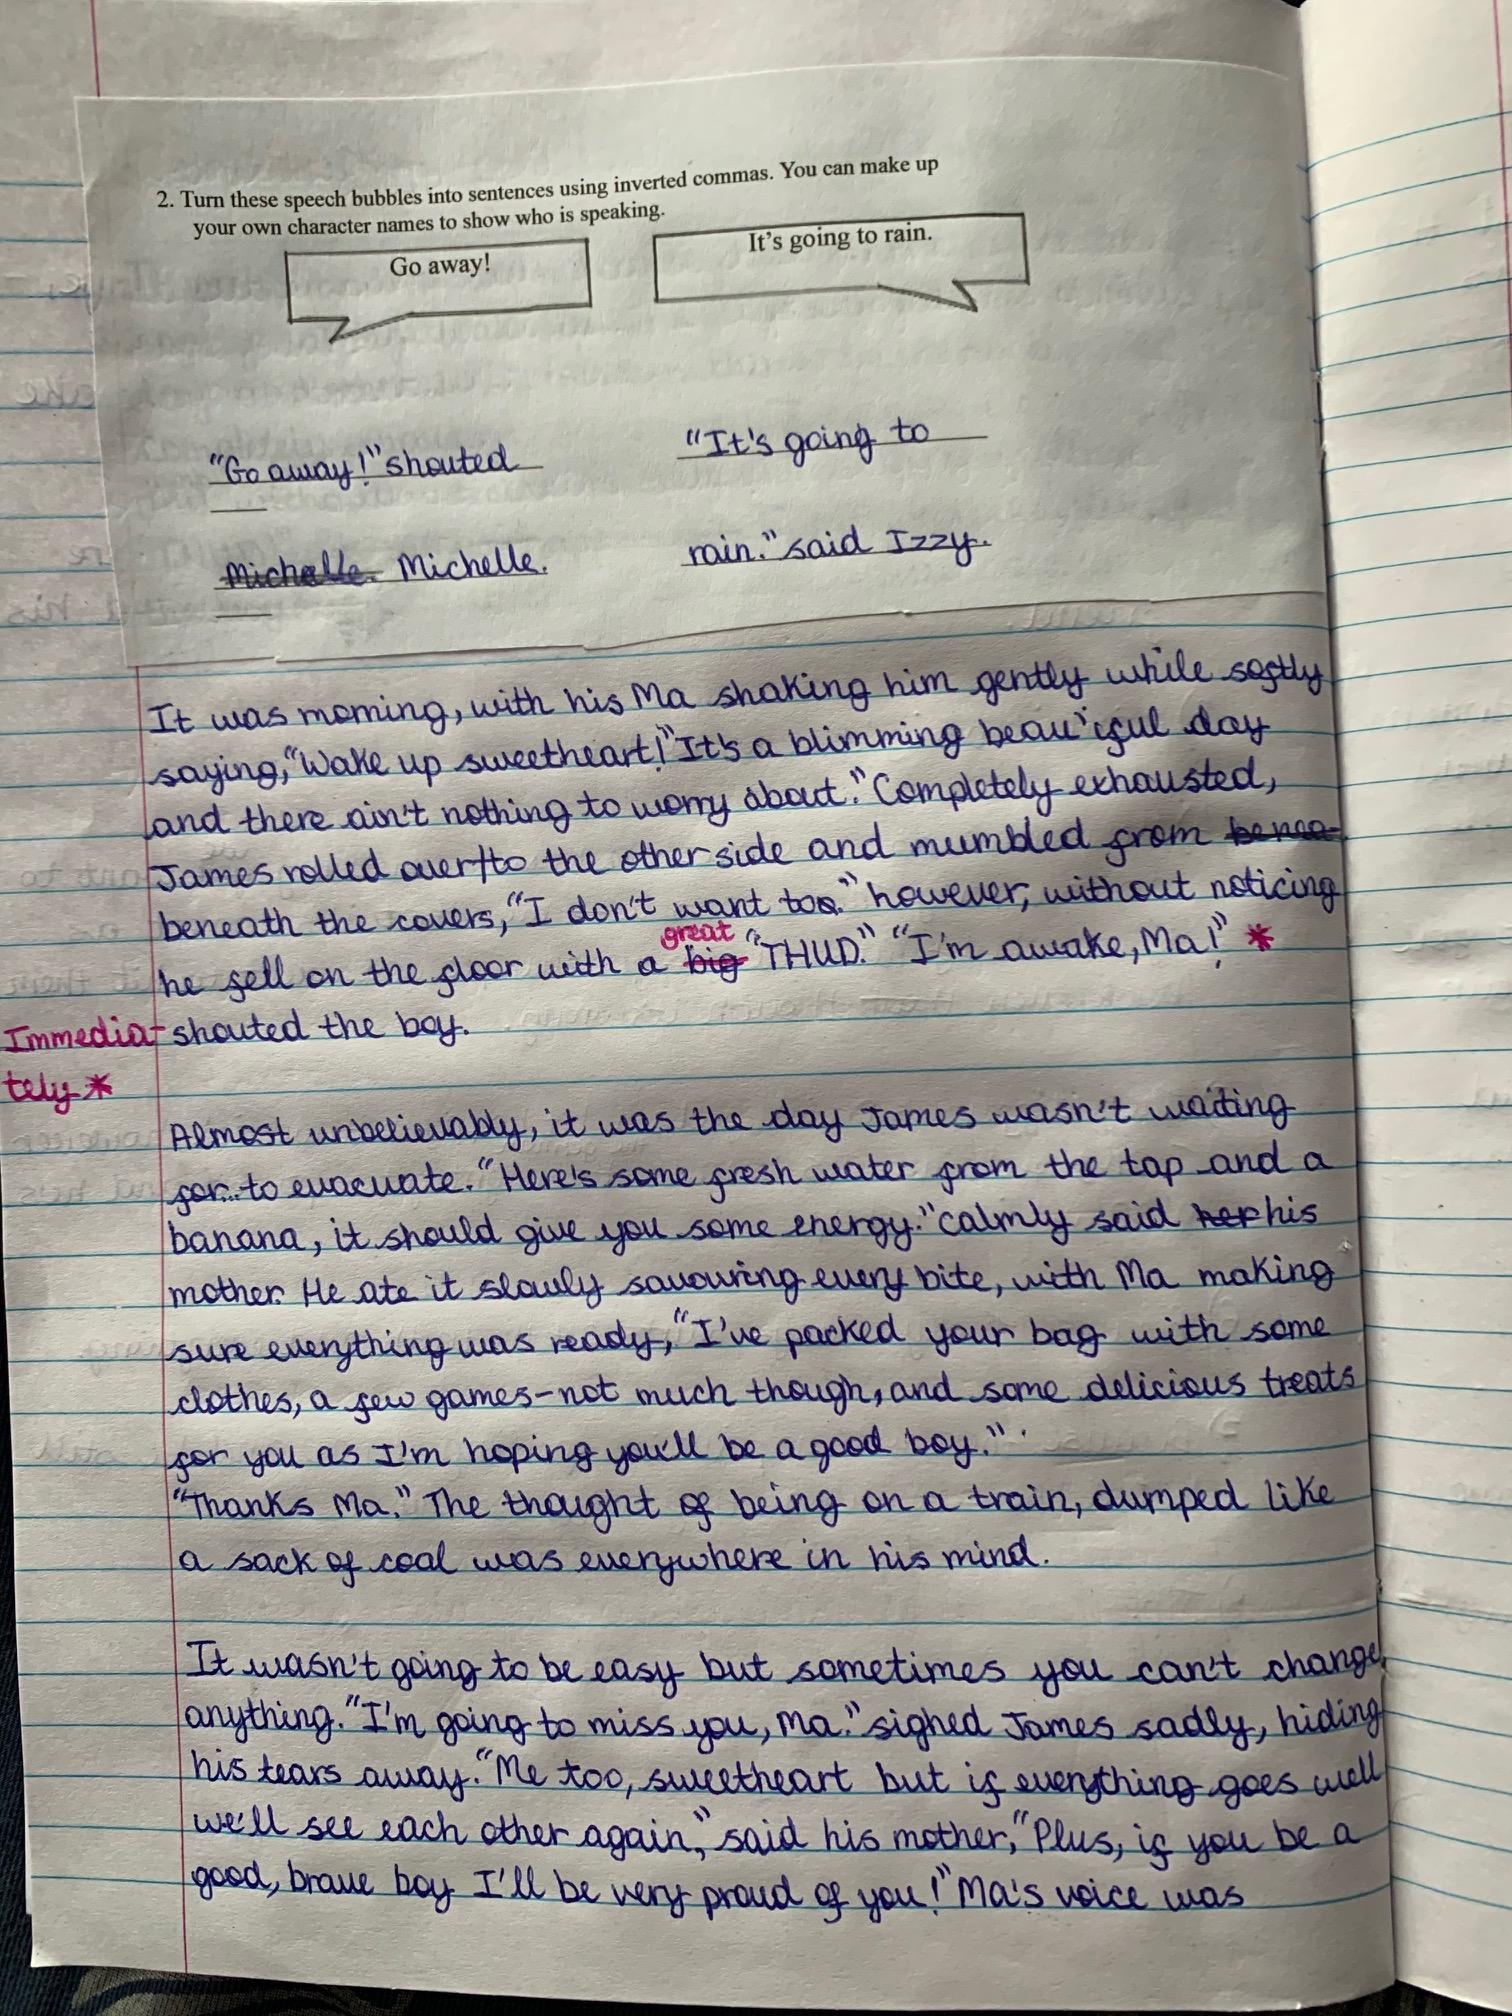 2. Turn these speech bubbles into sentences using inverted commas. You can make up
your own character names to show who is speaking.
Go away!
It's going to rain.
"Go away!" shouted
Michelle. Michelle.
"It's going to
rain." said Izzy.
It was morning, with his Ma shaking him gently while softly
saying, "Wake up sweetheart!" It's a blimming beau'iful day
and there ain't nothing to worry about." Completely exhausted,
James rolled over/to the other side and mumbled from benea-
beneath the covers, "I don't want too." however, without noticing
he fell on the floor with a big great "THUD." "I'm awake, Ma!" *
Immedia-
tely *
shouted the boy.
Almost unbelievably, it was the day James wasn't waiting
for...to evacuate. "Here's some fresh water from the tap and a
banana, it should give you some energy." calmly said her his
mother. He ate it slowly savouring every bite, with Ma making
sure everything was ready, "I've packed your bag with some
clothes, a few games-not much though, and some delicious treats
for you as I'm hoping you'll be a good boy."
"Thanks Ma." The thought of being on a train, dumped like
a sack of coal was everywhere in his mind.
It wasn't going to be easy but sometimes you can't change
anything. "I'm going to miss you, Ma." sighed James sadly, hiding
his tears away. "Me too, sweetheart but if everything goes well
we'll see each other again," said his mother, "Plus, if you be a
good, brave boy I'll be very proud of you!" Ma's voice was